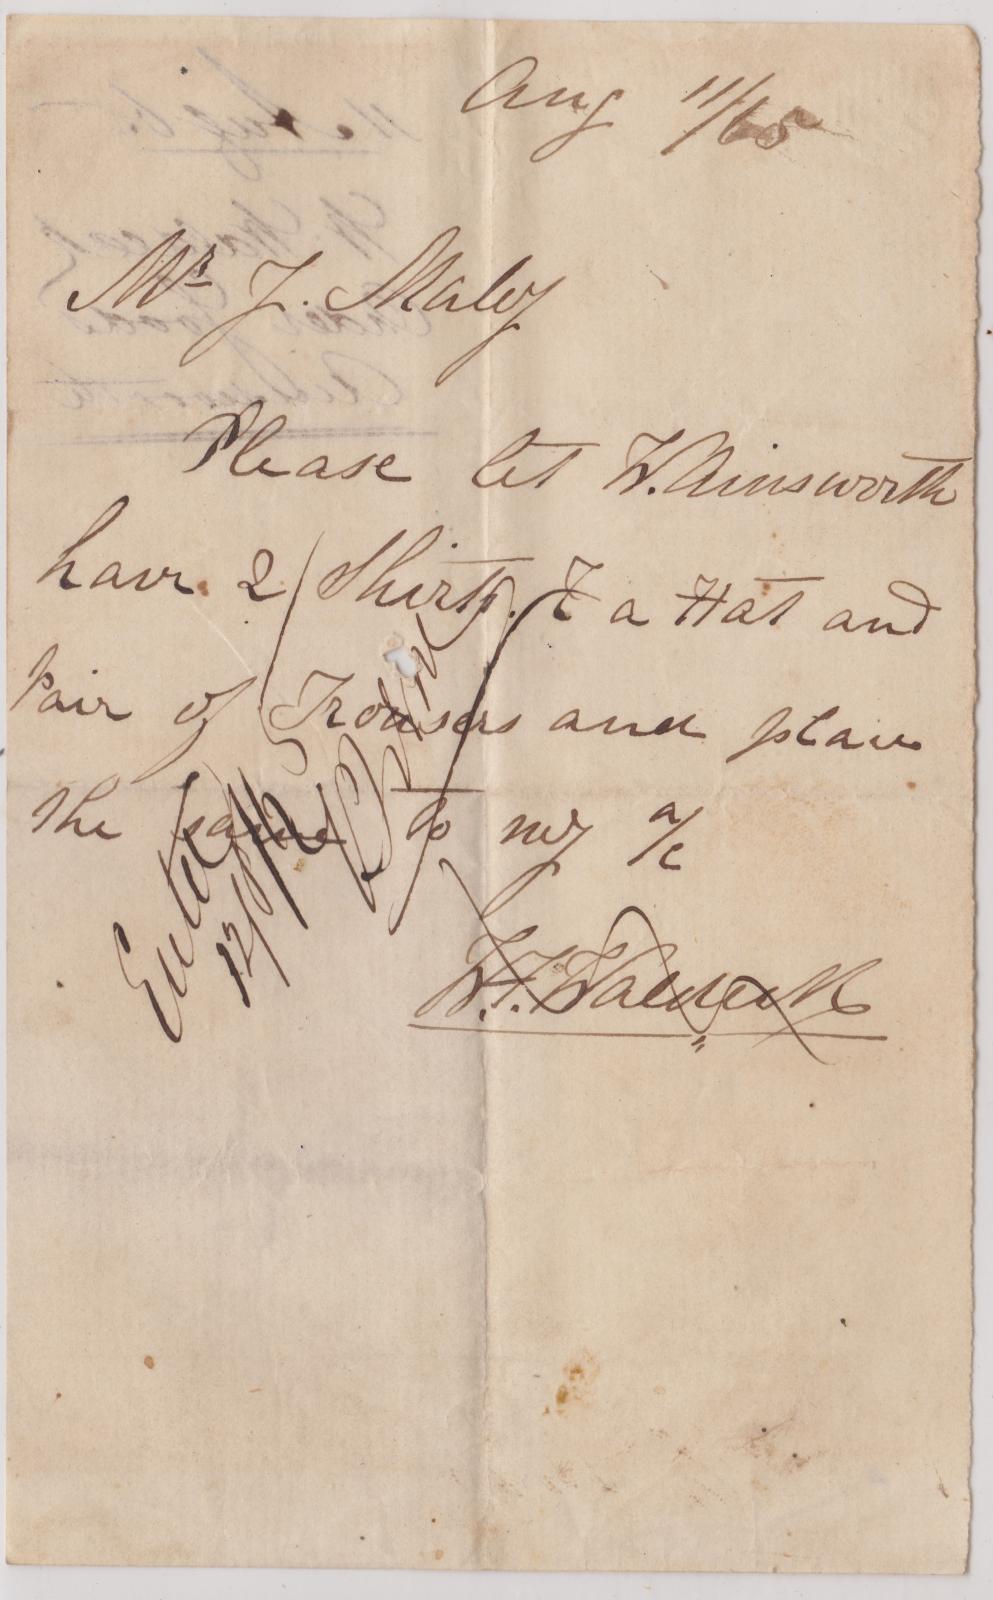 Aug 11/65
Mr J. Maley
Please let W. Ainsworth
have 2 Shirts & a Hat and
Pair of Trousers and place
the same to my a/c
W. F.
Entd
12/8/65